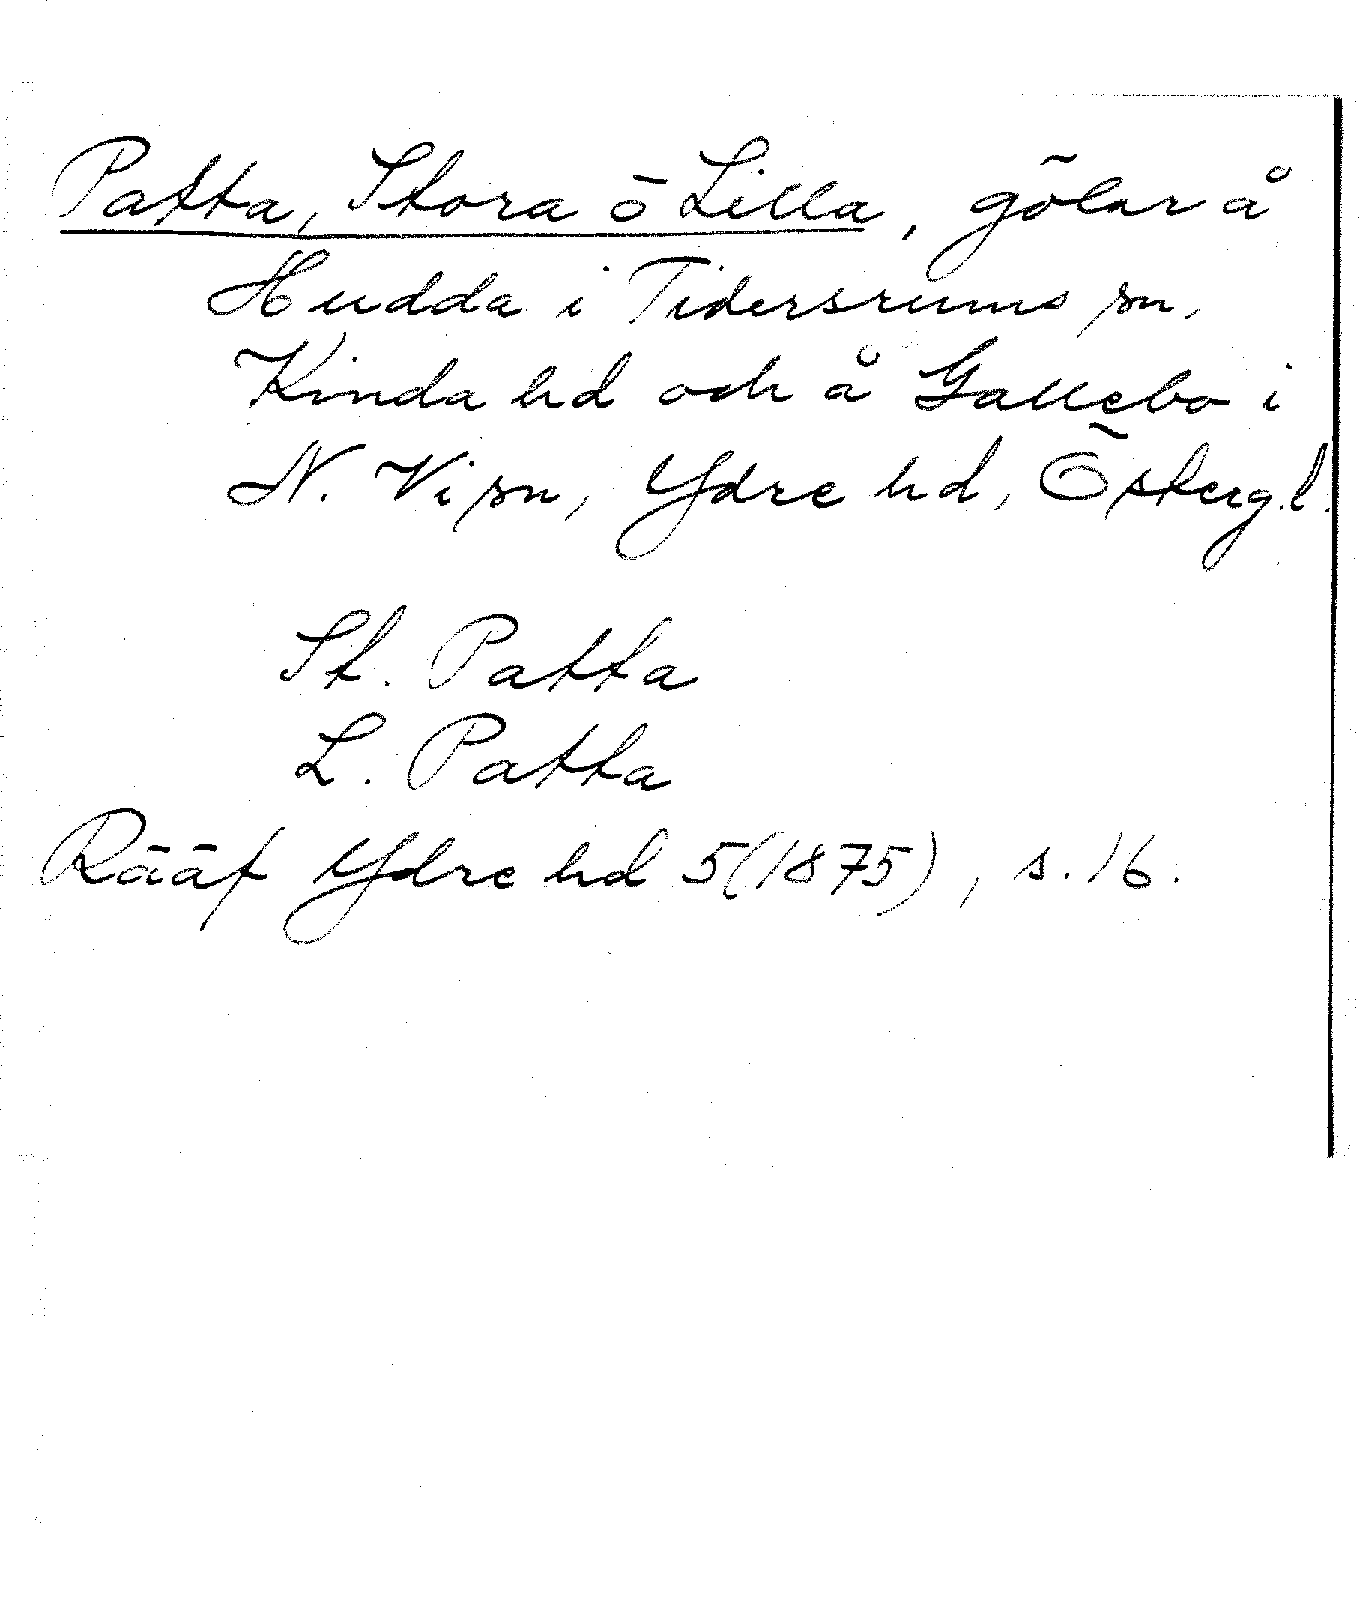 Patta, Stora ö Lilla, gölar å
Hudda i Tidersrums sn,
Kinda hd och å Gallebo i
N. Vi sn, Ydre hd, Östergl.
St. Patta
L. Patta
Rääf Ydre hd 5(1875), s. 16.